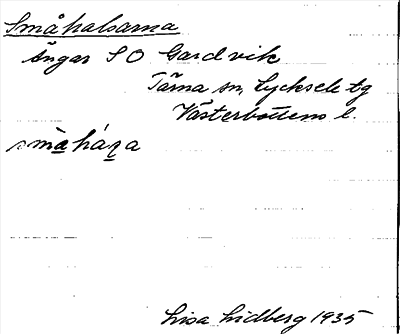 Småhalsarna
ängar S O Gardvik
Tärna sn, Lycksele tg
Västerbottens l.
småháʐa
Lisa Lidberg 1935